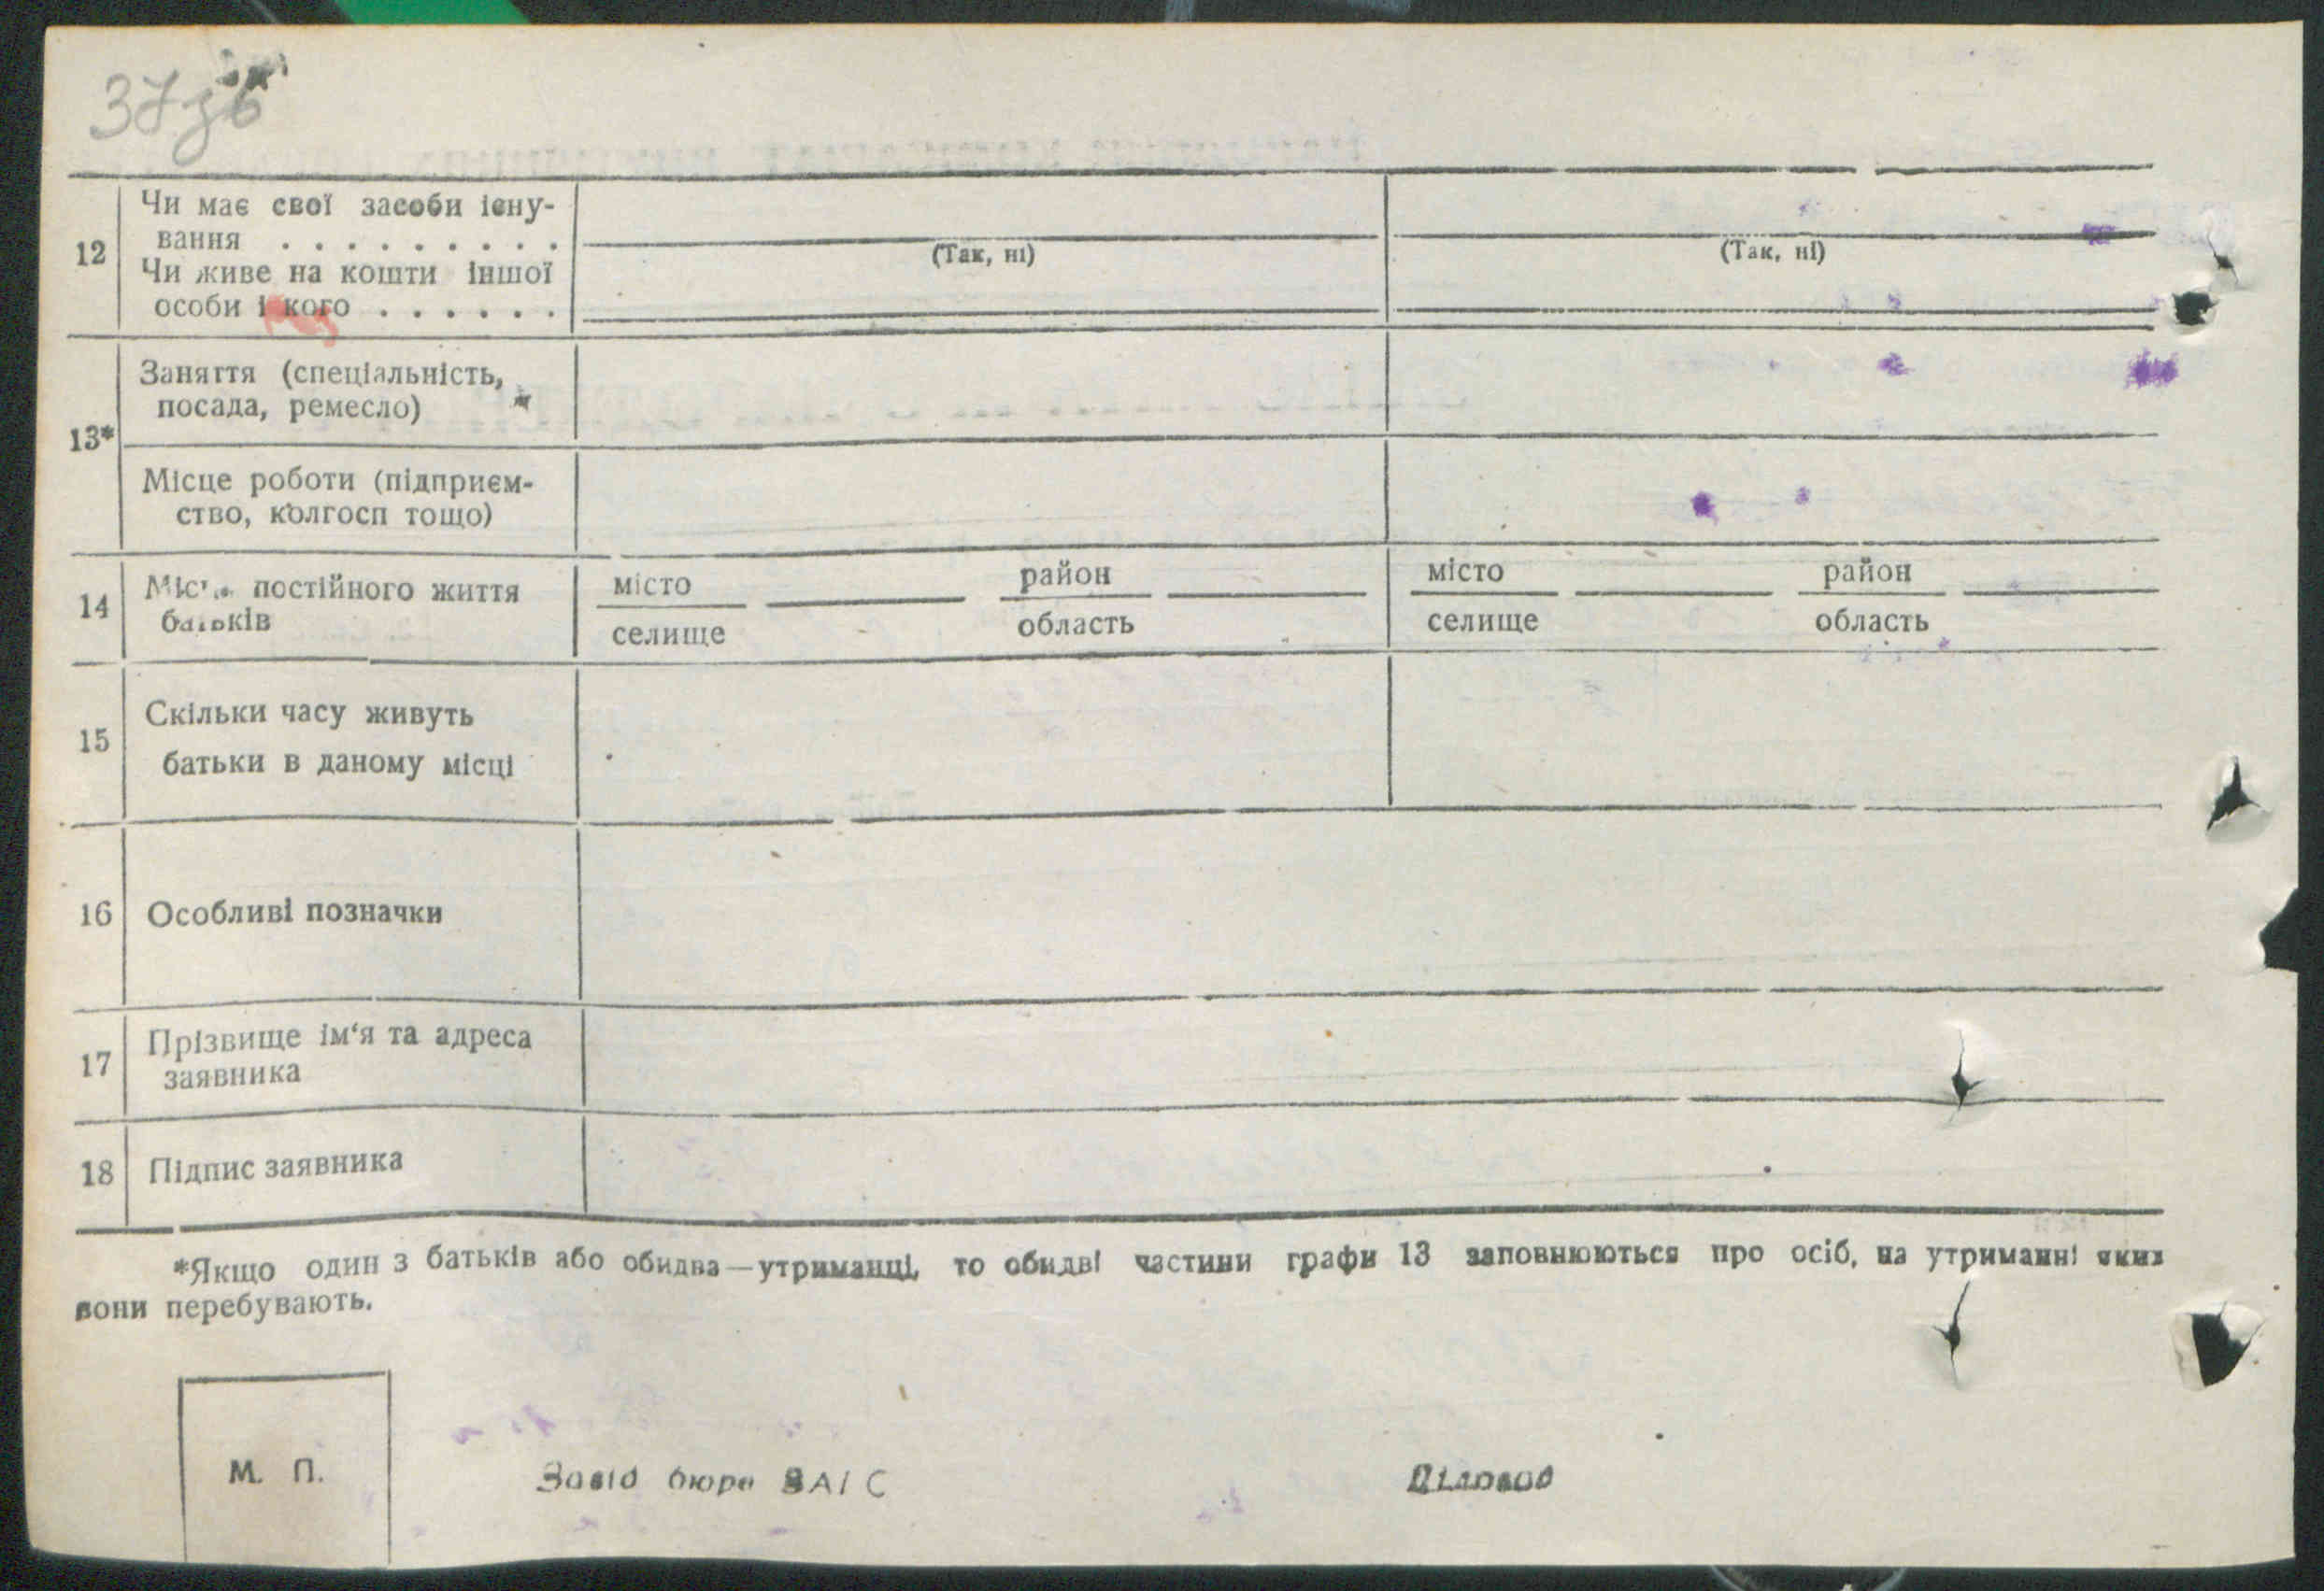 37зв
12
Чи має свої засоби існу-
вання . . . . . . . . .
(Так, ні)
(Так, ні)
Чи живе на кошти іншої
особи і кого . . . . . .
13*
Заняття (спеціальність,
посада, ремесло)
Місце роботи (підприєм-
ство, колгосп тощо)
14
постійного життя
батьків
місто
район
місто
район
селище
область
селище
область
15
Скільки часу живуть
батьки в даному місці
16
Особливі позначки
17
Прізвище ім'я та адреса
заявника
18
Підпис заявника
*Якщо один з батьків або обидва—утриманці, то обидві частини графи 13 заповнюються про осіб, на утриманні яких
вони перебувають.
М. П.
Завід бюро ЗАГС
Діловод